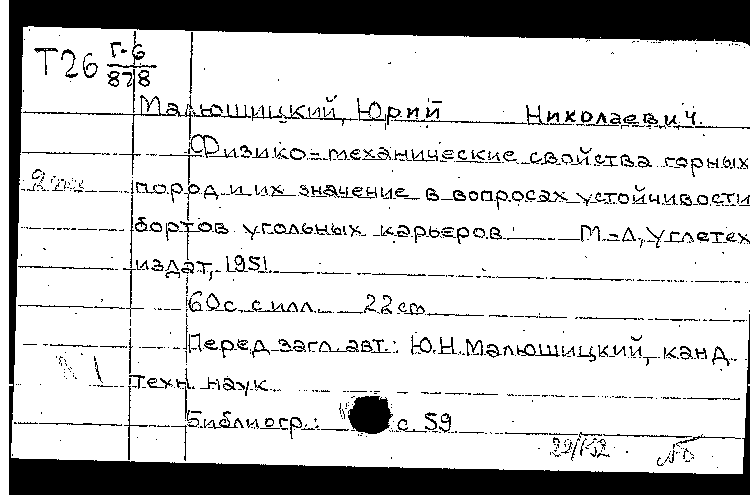 Т26 Г-6/878
Малюшицкий, Юрий Николаевич.
Физико-механические свойства горных
2 экз
пород и их значение в вопросах устойчивости
бортов угольных карьеров. М-Л, Углетех
издат, 1951
60с. с илл. 22 см
Перед загл. авт.: Ю.Н. Малюшицкий, канд
техн. наук
Библиогр.: с. 59
29/I-52